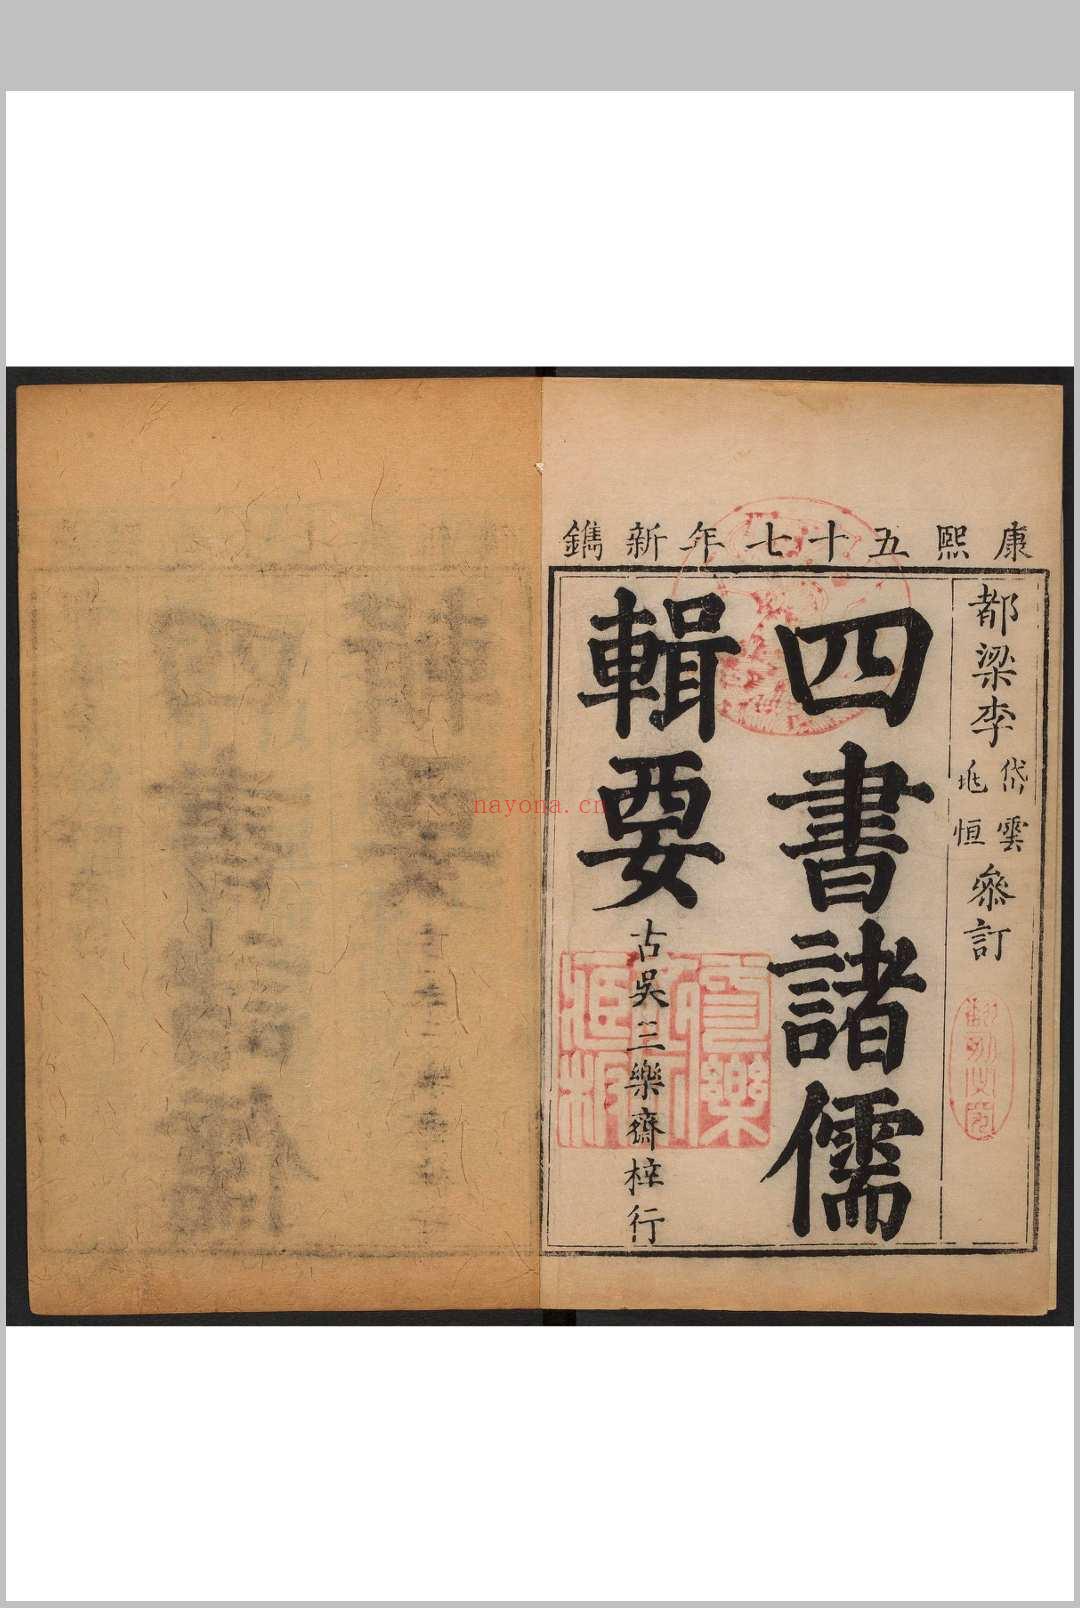 康熙五十七年新鐫
都梁李岱雲兆恒叅訂
四書諸儒
輯要
古吳三樂齋梓行
nayona.cn